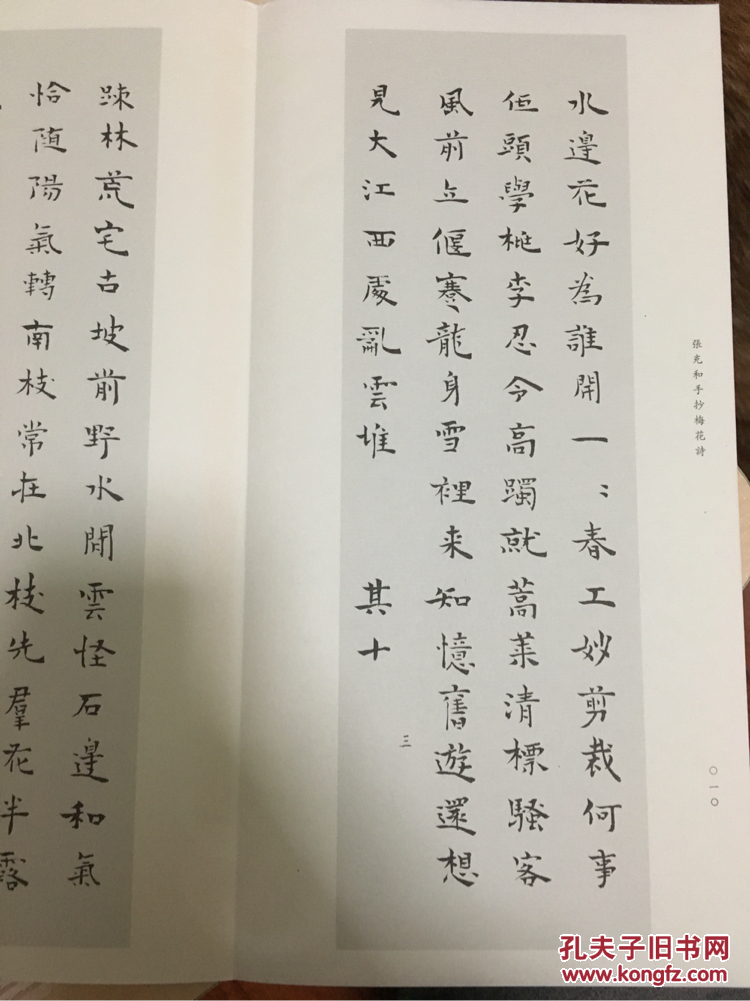 張充和手抄梅花詩
〇一〇
水邊花好為誰開一〻春工妙剪裁何事
低頭學桃李忍令高躅就蒿莱清標騷客
風前立偃蹇龍身雪裡来知憶舊遊還想
見大江西處亂雲堆 其十
三
疎林荒宅古坡前野水閒雲怪石邊和氣
恰随陽氣轉南枝常在北枝先羣花半露
孔夫子旧书网
www.kongfz.com